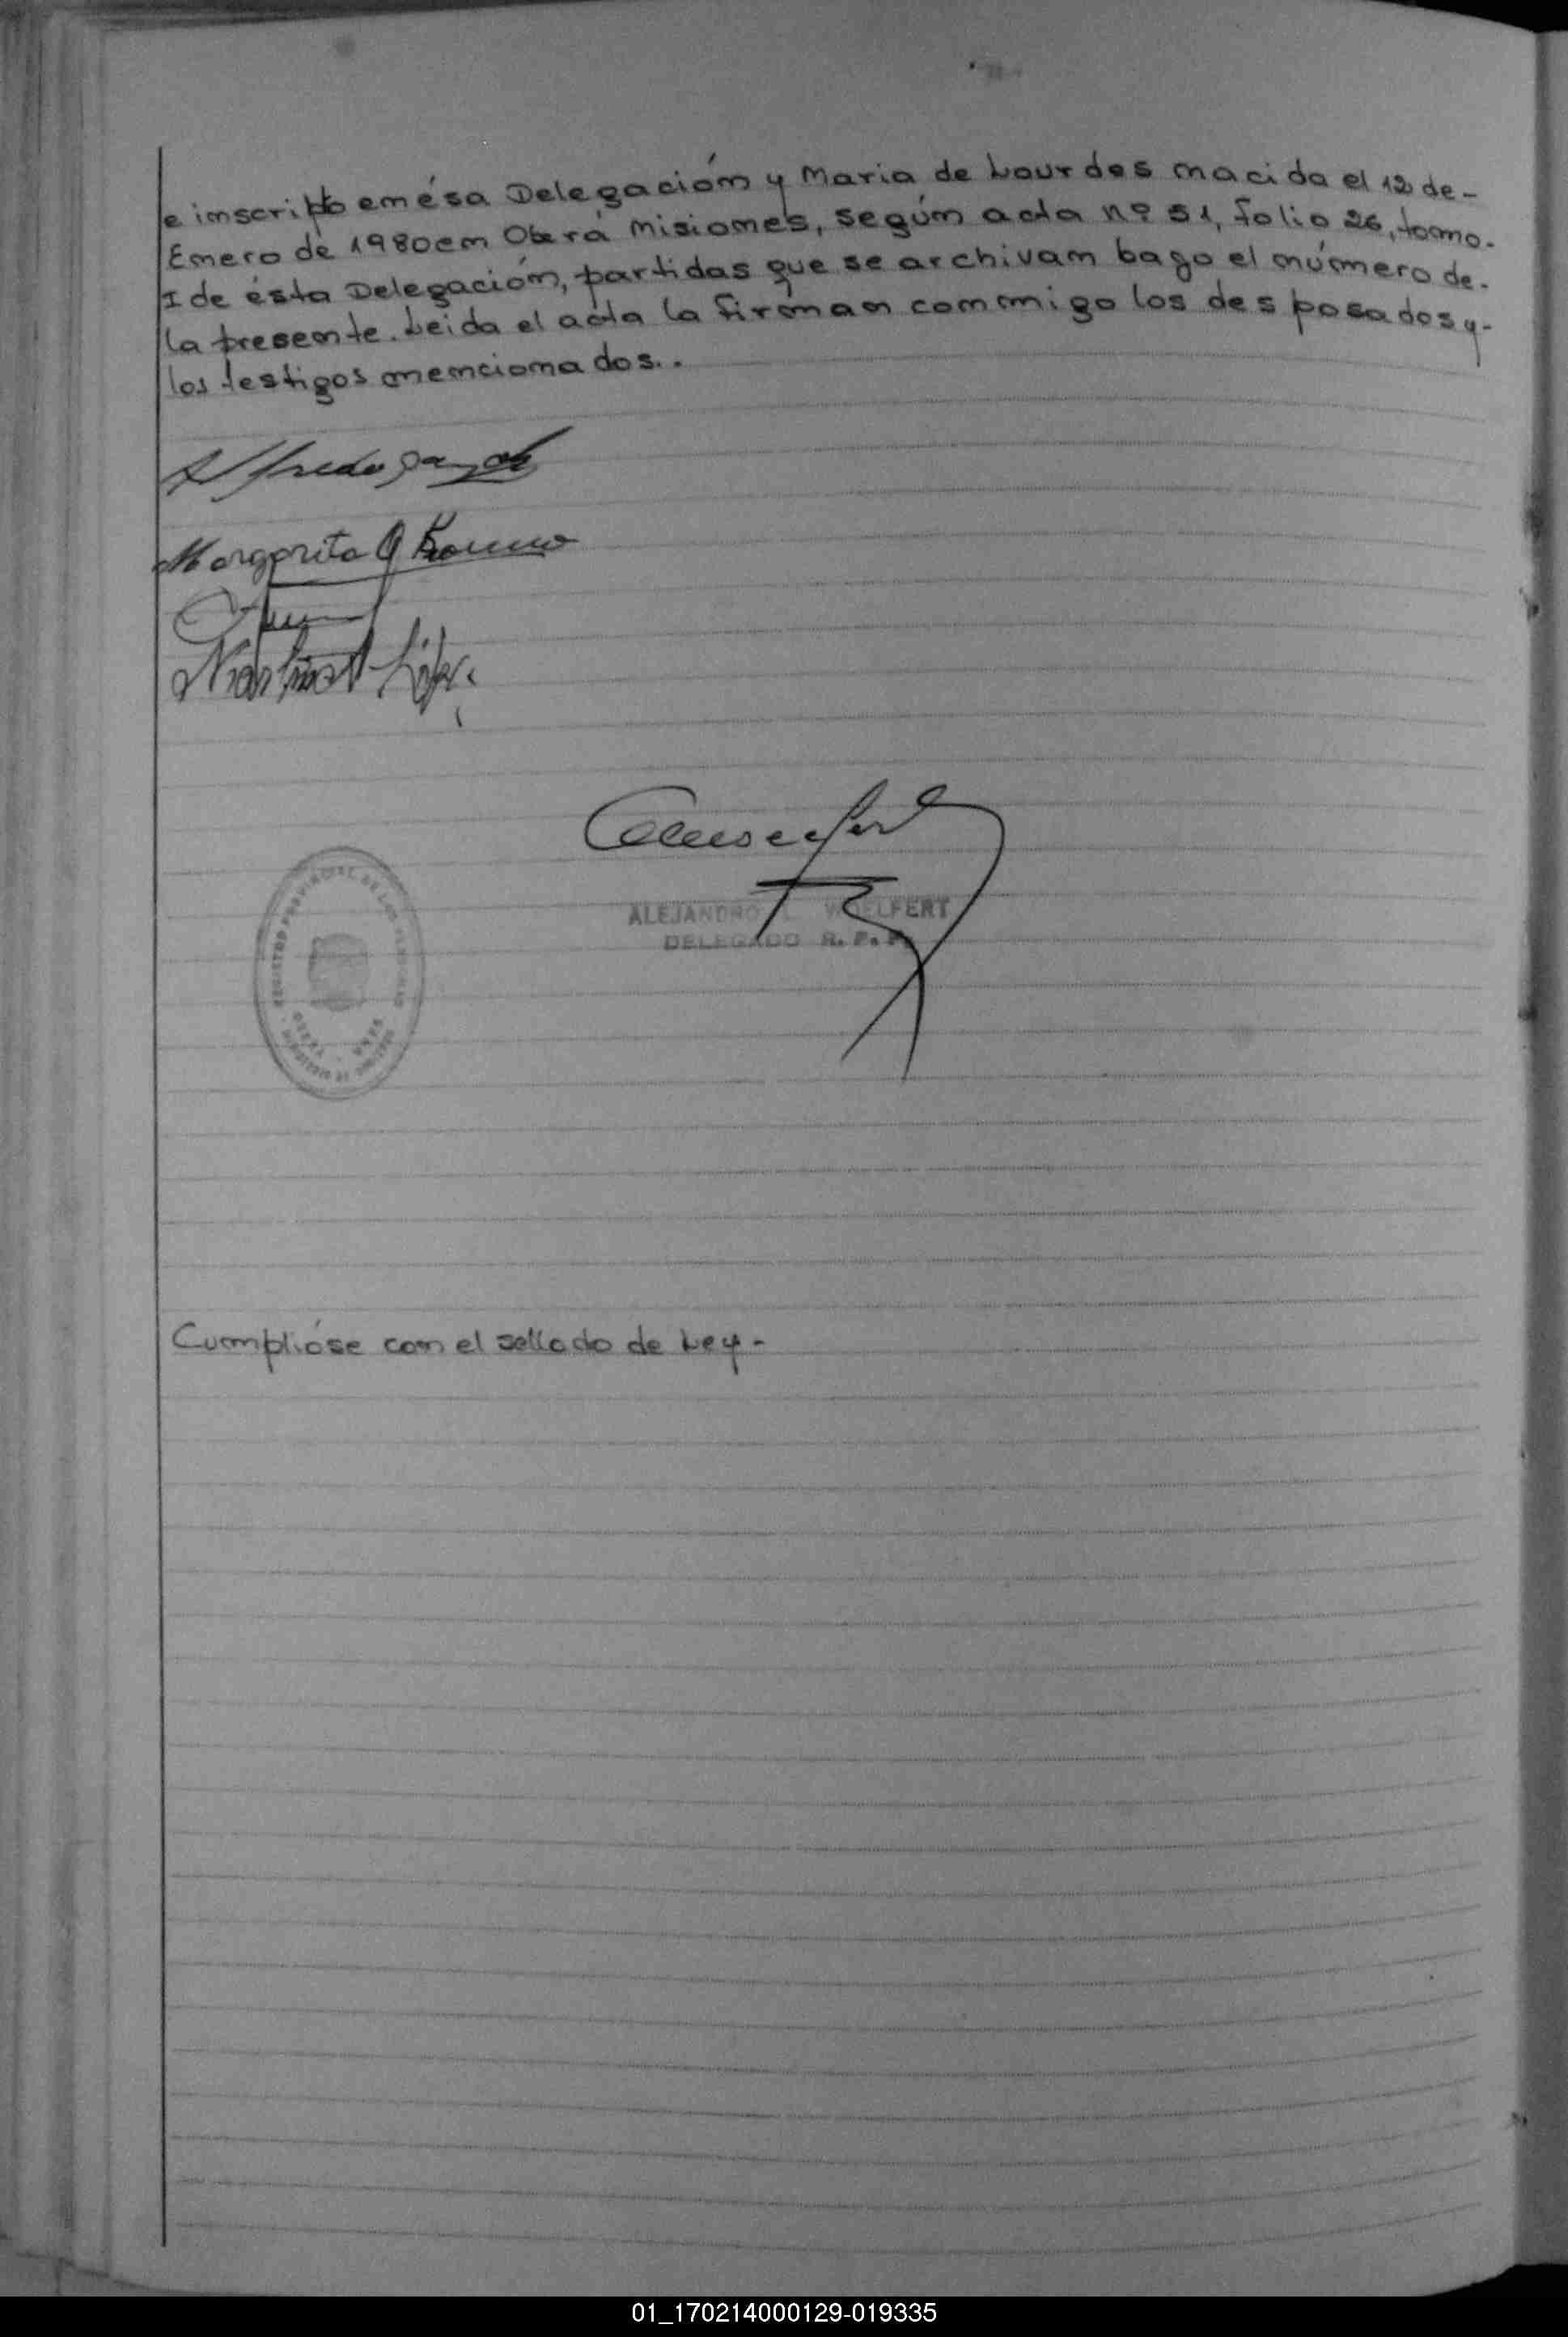 e inscripto en ésa Delegación y Maria de Lourdes nacida el 12 de-
Enero de 1980 en Oberá Misiones, según acta nº 51, folio 26, tomo-
I de ésta Delegación, partidas que se archivan bago el número de-
la presente. Leida el acta la firman conmigo los desposados y-
los testigos mencionados..
Alfredo
Margarita
ALEJANDRO L. WOELFERT
DELEGADO R. P. P.
REGISTRO PROVINCIAL DE LAS PERSONAS
Cumplióse con el sellado de Ley-
01_170214000129-019335